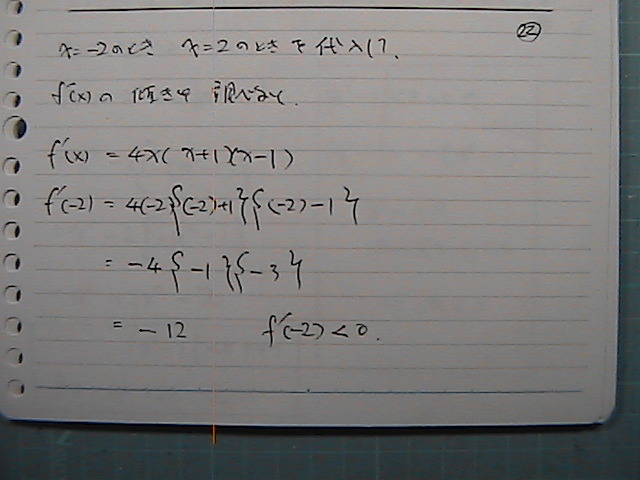 ㉒
x=-2のとき x=2のときを代入して、
f'(x)の 傾きを 調べると.
f'(x) = 4x(x+1)(x-1)
f'(-2) = 4(-2){(-2)+1}{(-2)-1}
= -4{-1}{-3}
= -12 f'(-2)<0.